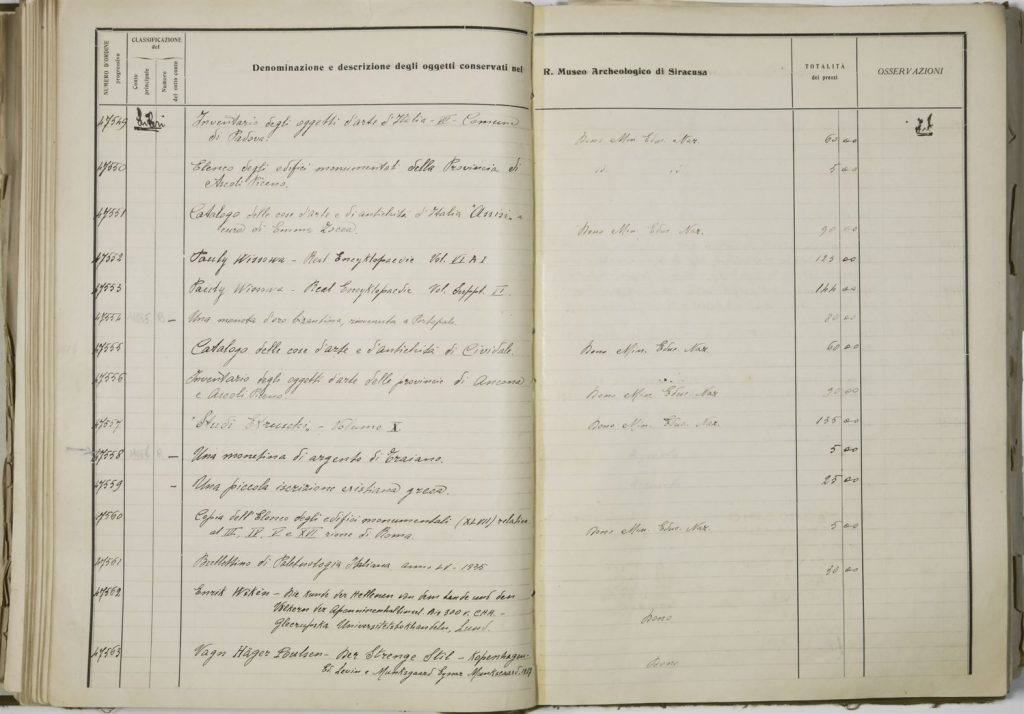 NUMERO D'ORDINE progressivo
CLASSIFICAZIONE del
Conto principale
Numero del sotto conto
Denominazione e descrizione degli oggetti conservati nel R. Museo Archeologico di Siracusa
TOTALITÀ dei prezzi
OSSERVAZIONI
47549 Libri Inventario degli oggetti d'arte d'Italia - VII - Comune
di Padova. Dono Min. Educ. Naz. 60 00
47550 Elenco degli edifici monumentali della Provincia di id. id. 5 00
Ascoli Piceno.
47551 Catalogo delle cose d'arte e di antichità d'Italia "Assisi" a
cura di Emma Zocca. Dono Min. Educ. Naz. 90 00
47552 Pauly Wissowa - Real Encyklopaedie Vol. VI A 1 123 00
47553 Pauly Wissowa - Real Encyklopaedie Vol. Suppl. VI. 144 00
47554 - Una moneta d'oro bizantina, rinvenuta a Portopalo. 80 00
47555 Catalogo delle cose d'arte e d'antichità di Cividale. Dono Min. Educ. Naz. 60 00
47556 Inventario degli oggetti d'arte delle provincie di Ancona
e Ascoli Piceno. Dono Min. Educ. Naz. 30 00
47557 "Studi Etruschi" - Volume X Dono Min. Educ. Naz. 135 00
47558 - Una monetina di argento di Traiano. 5 00
47559 - Una piccola iscrizione cristiana greca. 25 00
47560 Copia dell'Elenco degli edifici monumentali (XLVII) relativo
al III, IV, V e XVI rione di Roma. Dono Min. Educ. Naz. 5 00
47561 Bullettino di Paletnologia Italiana anno LV - 1935 30 00
47562 Enrik Wikén - Die Kunde der Hellenen von dem Lande und den
Völkern der Apenninenhalbinsel. Bis 300 v. CHR. -
Universitetsbokhandeln, Lund. Dono
47563 Vagn Häger Poulsen - Der Strenge Stil - Kopenhagen -
Levin e Munksgaard Ejnar Munksgaard. Dono